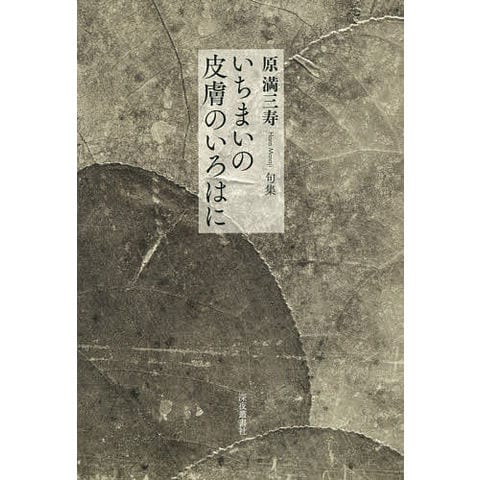 原 満三寿
Hara Masaji
句集
いちまいの
皮膚のいろはに
深夜叢書社